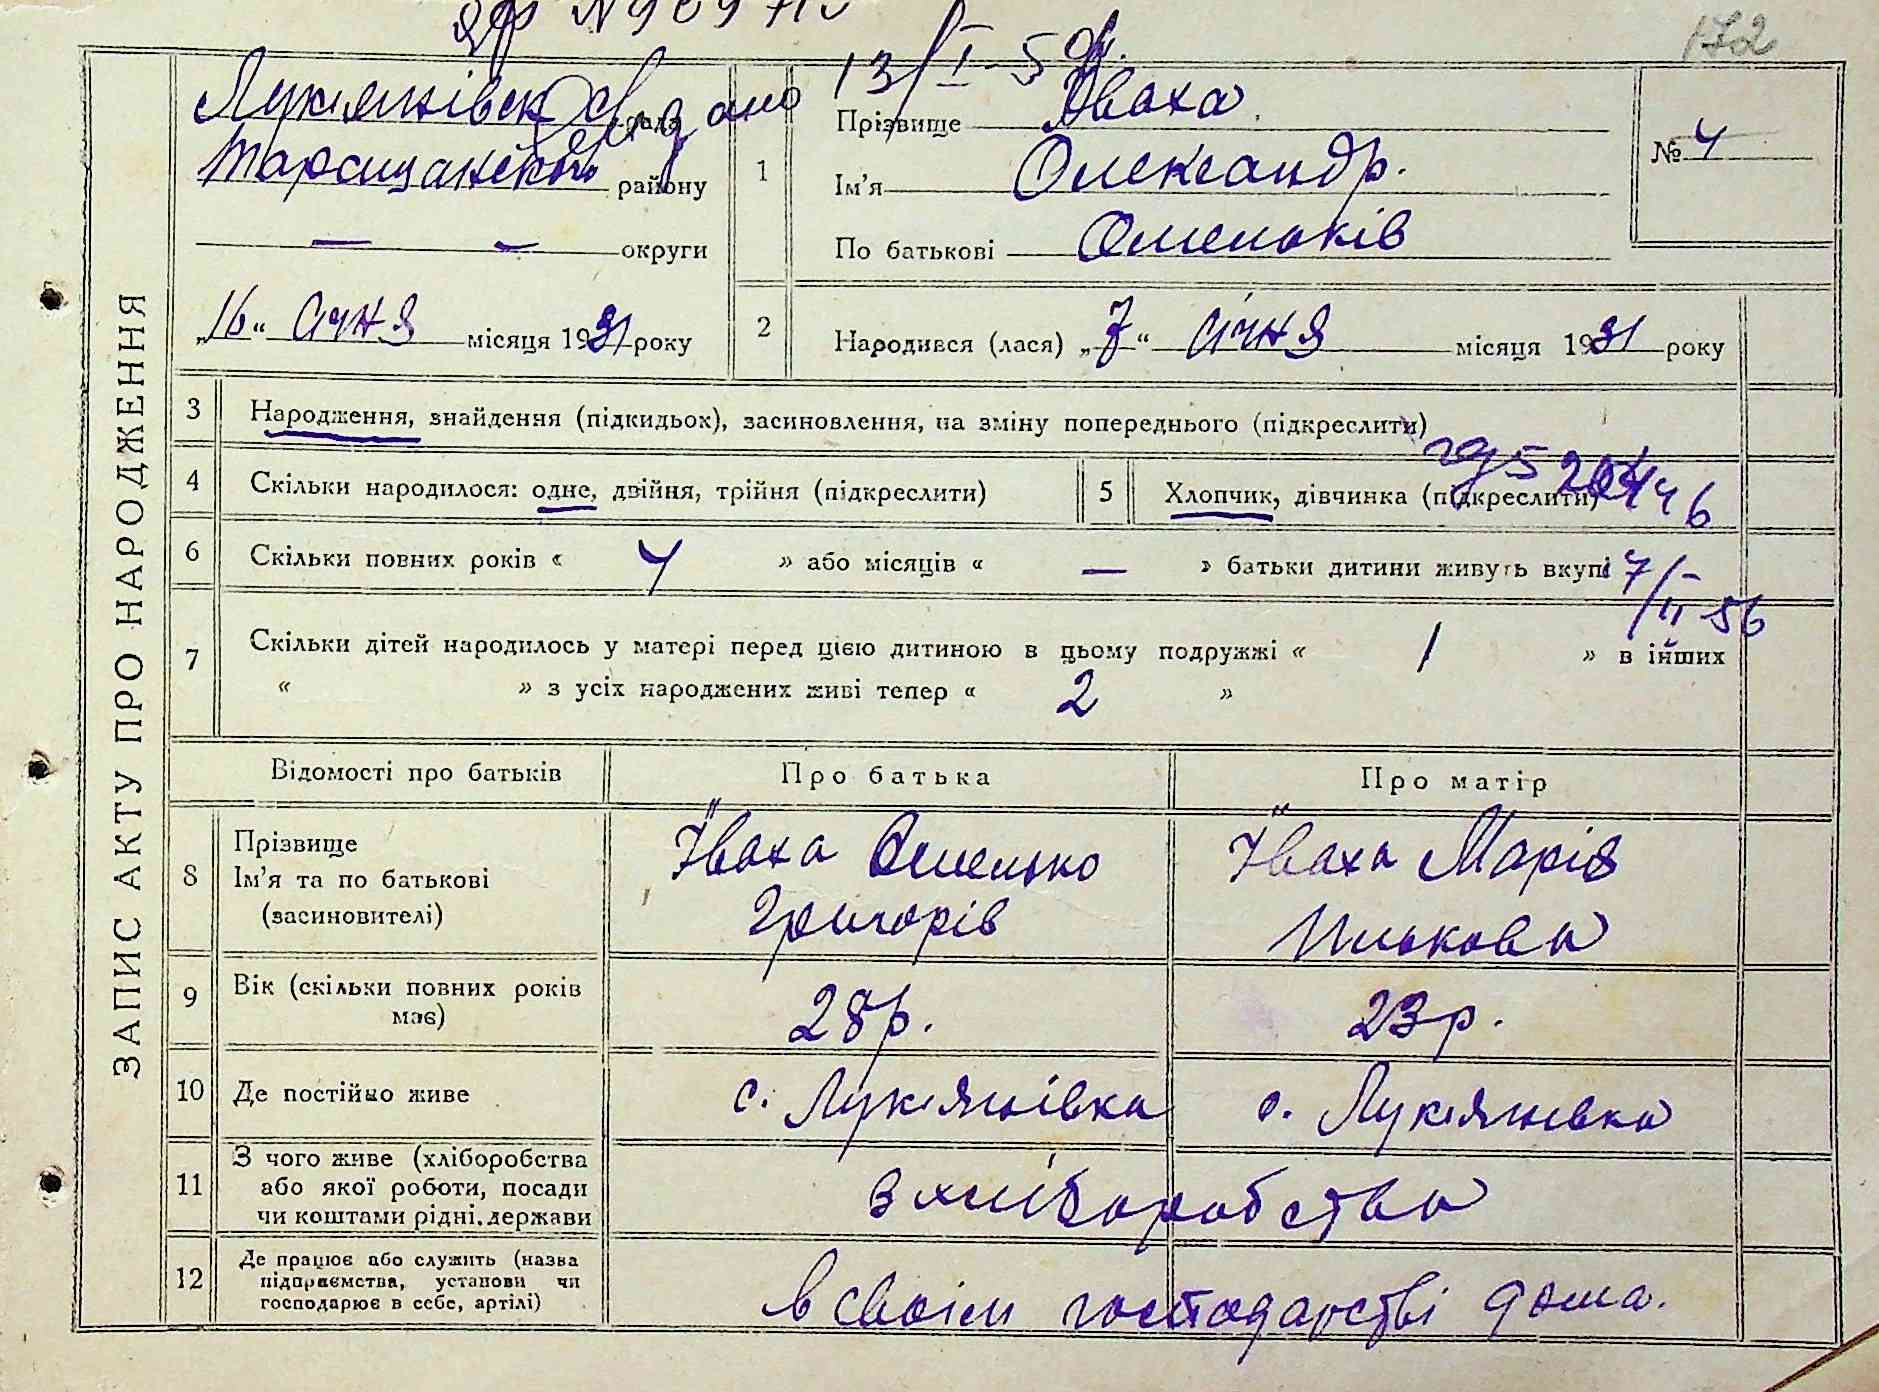 172
Лукянівська рада
Таращанського району
— — округи
„16“ січня місяця 1931 року
13/I-5
1 Прізвище Іваха
Ім'я Олександр.
По батькові Омельків
№ 4
2 Народився (лася) „7“ січня місяця 1931 року
ЗАПИС АКТУ ПРО НАРОДЖЕННЯ
3 Народження, знайдення (підкидьох), засиновлення, на зміну попереднього (підкреслити)
4 Скільки народилося: одне, двійня, трійня (підкреслити)
5 Хлопчик, дівчинка (підкреслити)
6 Скільки повних років « 4 » або місяців « — » батьки дитини живуть вкупі
7/II-56
7 Скільки дітей народилось у матері перед цією дитиною в цьому подружжі « 1 » в інших
« » з усіх народжених живі тепер « 2 »
Відомості про батьків Про батька Про матір
8 Прізвище
Ім'я та по батькові
(засиновителі)
Іваха Омелько
Григорів
Іваха Марія
Ількова
9 Вік (скільки повних років
має)
28р. 23р.
10 Де постійно живе с. Лукянівка с. Лукянівка
11 З чого живе (хліборобства
або якої роботи, посади
чи коштами рідні, держави
з хліборобства
12 Де працює або служить (назва
підприємства, установи чи
господарює в себе, артілі)
в своїм господарстві дома.